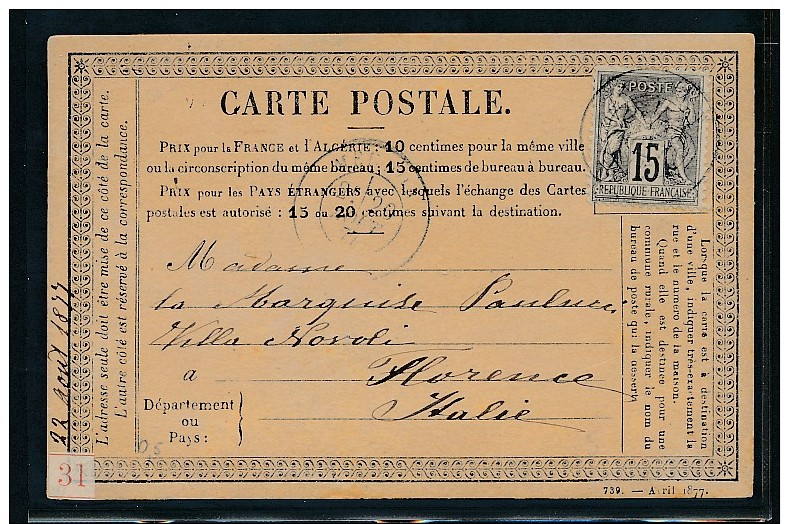 CARTE POSTALE.
POSTE
15
REPUBLIQUE FRANÇAISE
PRIX pour la FRANCE et l'ALGÉRIE : 10 centimes pour la même ville
ou la circonscription du même bureau ; 15 centimes de bureau à bureau.
PRIX pour les PAYS ÉTRANGERS avec lesquels l'échange des Cartes
postales est autorisé : 15 ou 20 centimes suivant la destination.
Madame
la Marquise Paulucci
Villa Novoli
a Florence
Italie
Département
ou
Pays :
L'adresse seule doit être mise de ce côté de la carte.
L'autre côté est réservé à la correspondance.
22 août 1877
Lorsque la carte est à destination
d'une ville, indiquer très-exactement la
rue et le numéro de la maison.
Quand elle est destinée pour une
commune rurale, indiquer le nom du
bureau de poste qui la dessert.
31
739. — Avril 1877.